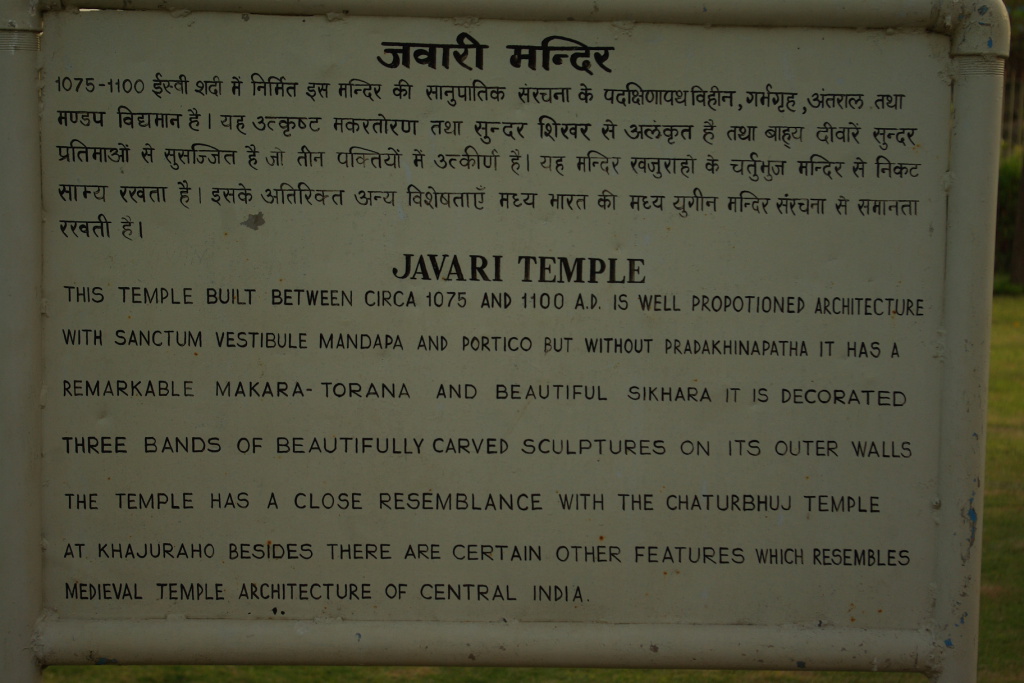 जवारी मन्दिर
1075-1100 ईस्वी शदी में निर्मित इस मन्दिर की सानुपातिक संरचना के पदक्षिणापथ विहीन, गर्मगृह, अंतराल तथा
मण्डप विद्यमान है। यह उत्कृष्ट मकरतोरण तथा सुन्दर शिखर से अलंकृत है तथा बाह्य दीवारें सुन्दर
प्रतिमाओं से सुसज्जित है जो तीन पक्तियों में उत्कीर्ण है। यह मन्दिर खजुराहो के चर्तुभुज मन्दिर से निकट
साम्य रखता है। इसके अतिरिक्त अन्य विशेषताएँ मध्य भारत की मध्य युगीन मन्दिर संरचना से समानता
रखती है।
JAVARI TEMPLE
THIS TEMPLE BUILT BETWEEN CIRCA 1075 AND 1100 A.D. IS WELL PROPOTIONED ARCHITECTURE
WITH SANCTUM VESTIBULE MANDAPA AND PORTICO BUT WITHOUT PRADAKHINAPATHA IT HAS A
REMARKABLE MAKARA-TORANA AND BEAUTIFUL SIKHARA IT IS DECORATED
THREE BANDS OF BEAUTIFULLY CARVED SCULPTURES ON ITS OUTER WALLS
THE TEMPLE HAS A CLOSE RESEMBLANCE WITH THE CHATURBHUJ TEMPLE
AT KHAJURAHO BESIDES THERE ARE CERTAIN OTHER FEATURES WHICH RESEMBLES
MEDIEVAL TEMPLE ARCHITECTURE OF CENTRAL INDIA.